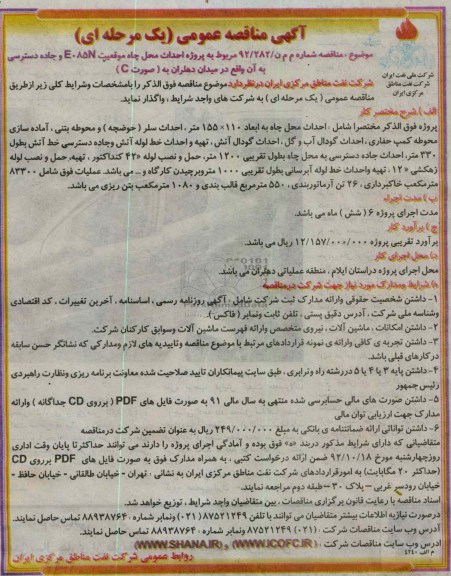 آگهی مناقصه عمومی (یک مرحله ای)
موضوع : مناقصه شماره م م ن/۹۲/۲۸۲ مربوط به پروژه احداث محل چاه موقعیت E-۰۸۵N و جاده دسترسی
به آن واقع در میدان دهلران به ( صورت C )
شرکت ملی نفت ایران
شرکت نفت مناطق
مرکزی ایران
شرکت نفت مناطق مرکزی ایران در نظر دارد موضوع مناقصه فوق الذکر را بامشخصات وشرایط کلی زیر ازطریق
مناقصه عمومی ( یک مرحله ای ) به شرکت های واجد شرایط ، واگذار نماید.
الف ) شرح مختصر کار
پروژه فوق الذکر مختصرا شامل : احداث محل چاه به ابعاد ۱۱۰×۱۵۵ متر ، احداث سلر ( حوضچه ) و محوطه بتنی ، آماده سازی
محوطه کمپ حفاری ، احداث گودال آب و گل ، احداث گودال آتش ، تهیه و احداث خط لوله آتش وجاده دسترسی خط آتش بطول
۳۳۰ متر، احداث جاده دسترسی به محل چاه بطول تقریبی ۱۲۰۰ متر، حمل و نصب لوله ۴۲» کنداکتور ، تهیه، حمل و نصب لوله
زهکشی ۱۲» ، تهیه واحداث خط لوله آبرسانی بطول تقریبی ۱۰۰۰ متروبرچیدن کارگاه و ... می باشد. عملیات فوق شامل ۸۳۳۰۰
مترمکعب خاکبرداری ، ۲۶ تن آرماتوربندی ، ۵۵۰ مترمربع قالب بندی و ۱۰۸۰ مترمکعب بتن ریزی می باشد.
ب ) مدت اجراء
مدت اجرای پروژه ۶ ( شش ) ماه می باشد.
ج ) برآورد کار
برآورد تقریبی پروژه ۱۲/۱۵۷/۰۰۰/۰۰۰ ریال می باشد.
د) محل اجرای کار
محل اجرای پروژه دراستان ایلام ، منطقه عملیاتی دهلران می باشد.
ه) شرایط ومدارک مورد نیاز جهت شرکت درمناقصه
۱- داشتن شخصیت حقوقی وارائه مدارک ثبت شرکت شامل : آگهی روزنامه رسمی ، اساسنامه ، آخرین تغییرات ، کد اقتصادی
وشناسه ملی شرکت ، آدرس دقیق پستی ، تلفن ثابت ونمابر ( فاکس ).
۲- داشتن امکانات ، ماشین آلات ، نیروی متخصص وارائه فهرست ماشین آلات وسوابق کارکنان شرکت.
۳- داشتن تجربه ی کافی وارائه ی نمونه قراردادهای مرتبط با موضوع مناقصه وتاییدیه های لازم ومدارکی که نشانگر حسن سابقه
در کارهای قبلی باشد.
۴-داشتن پایه ۳ یا ۴ یا ۵ دررشته راه وترابری ، طبق سایت پیمانکاران تایید صلاحیت شده معاونت برنامه ریزی ونظارت راهبردی
رئیس جمهور
۵- داشتن صورت های مالی حسابرسی شده منتهی به سال مالی ۹۱ به صورت فایل های PDF ( برروی CD جداگانه ) وارائه
مدارک جهت ارزیابی توان مالی
۶- داشتن توانائی ارائه ضمانتنامه ی بانکی به مبلغ ۲۴۹/۰۰۰/۰۰۰ ریال به عنوان تضمین شرکت درمناقصه
متقاضیانی که دارای شرایط مذکور دربند «ه» فوق بوده و آمادگی اجرای پروژه را دارند می توانند حداکثر تا پایان وقت اداری
روزچهارشنبه مورخ ۹۲/۱۰/۱۸ ضمن ارائه درخواست کتبی ، به همراه مدارک فوق به صورت فایل های PDF برروی CD
(حداکثر ۲۰ مگابایت) به امورقراردادهای شرکت نفت مناطق مرکزی ایران به نشانی : تهران - خیابان طالقانی - خیابان حافظ -
خیابان رودسر غربی - پلاک ۳۰ - طبقه دوم مراجعه نمایند.
اسناد مناقصه با رعایت قانون برگزاری مناقصات ، بین متقاضیان واجد شرایط ، توزیع خواهد شد.
درصورت نیازبه اطلاعات بیشتر متقاضیان می توانند با تلفن ۸۷۵۲۱۲۴۹ (۰۲۱) ونمابر شماره ۸۸۹۳۸۷۶۴ تماس حاصل نمایند.
آدرس وب سایت مناقصات شرکت : (۰۲۱) ۸۷۵۲۱۲۴۹ ونمابر شماره ۸۸۹۳۸۷۶۴ تماس حاصل نمایند.
آدرس وب سایت مناقصات شرکت : (WWW.ICOFC.IR) و (WWW.SHANA.IR)
م الف ۴۲۴۰
روابط عمومی شرکت نفت مناطق مرکزی ایران